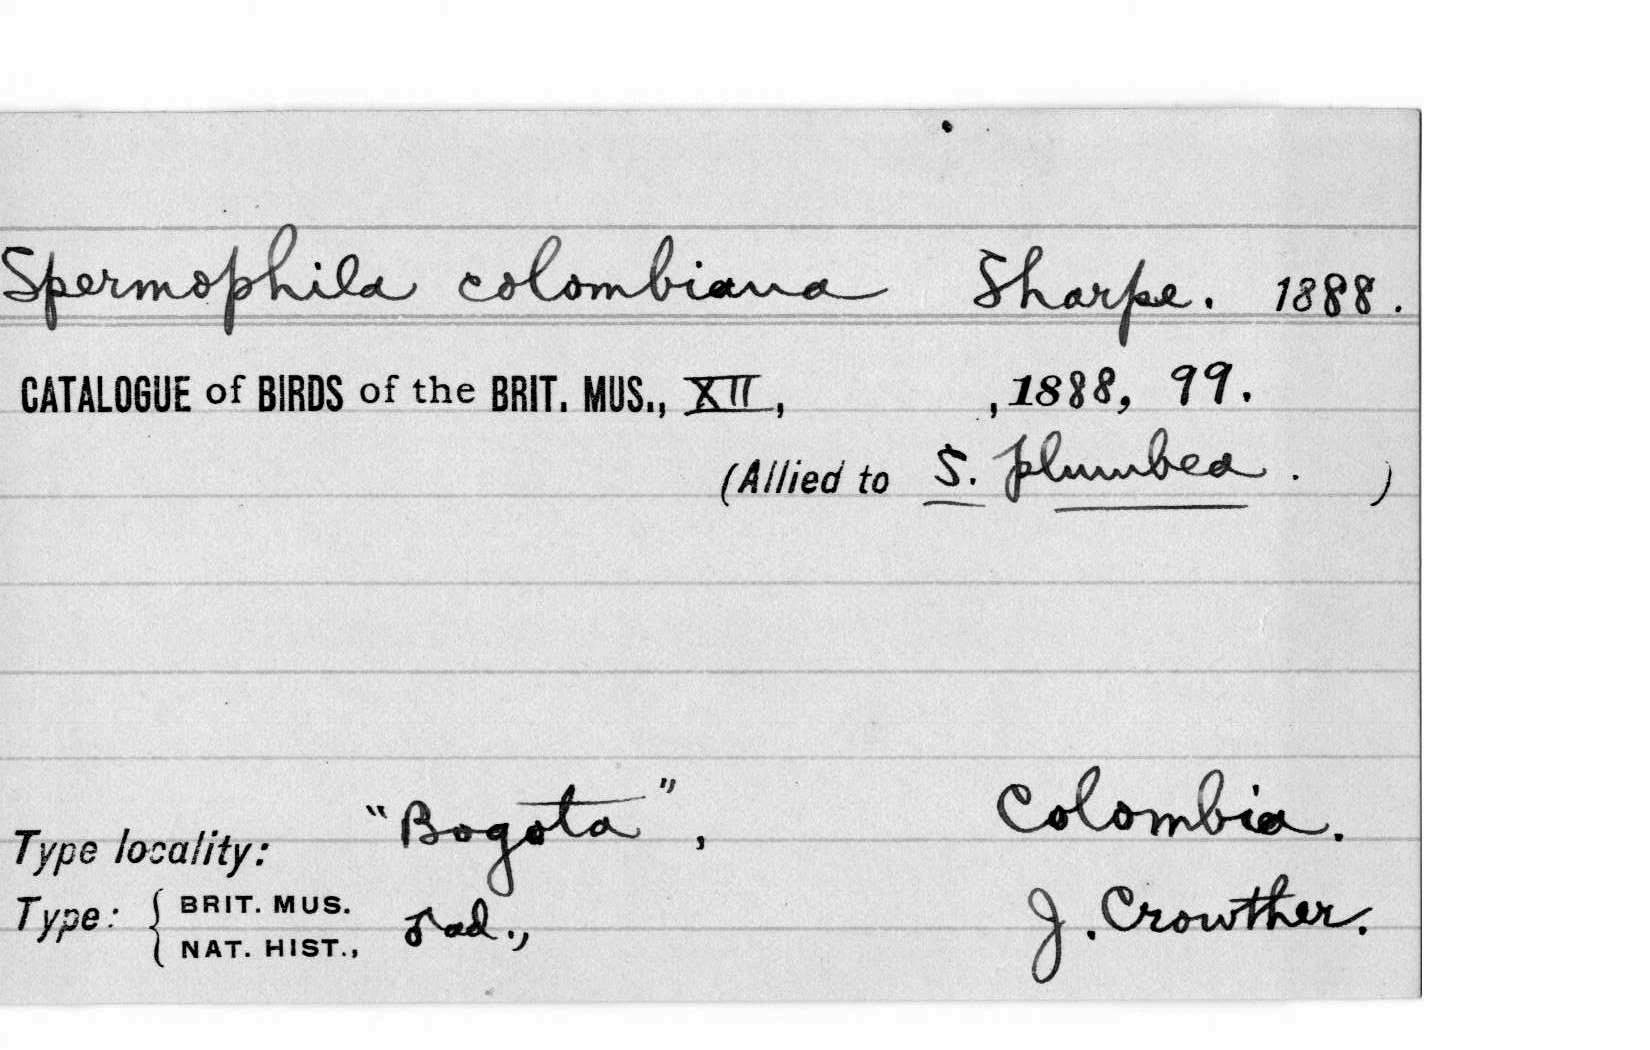 Spermophila colombiana Sharpe. 1888.
CATALOGUE of BIRDS of the BRIT. MUS., XII, , 1888, 99.
(Allied to S. plumbea. )
Type locality: "Bogota", Colombia.
Type: { BRIT. MUS. NAT. HIST., ♂ad., J. Crowther.